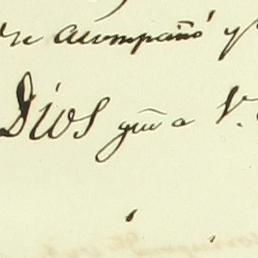 se acompañó y
Dios gũe a V.